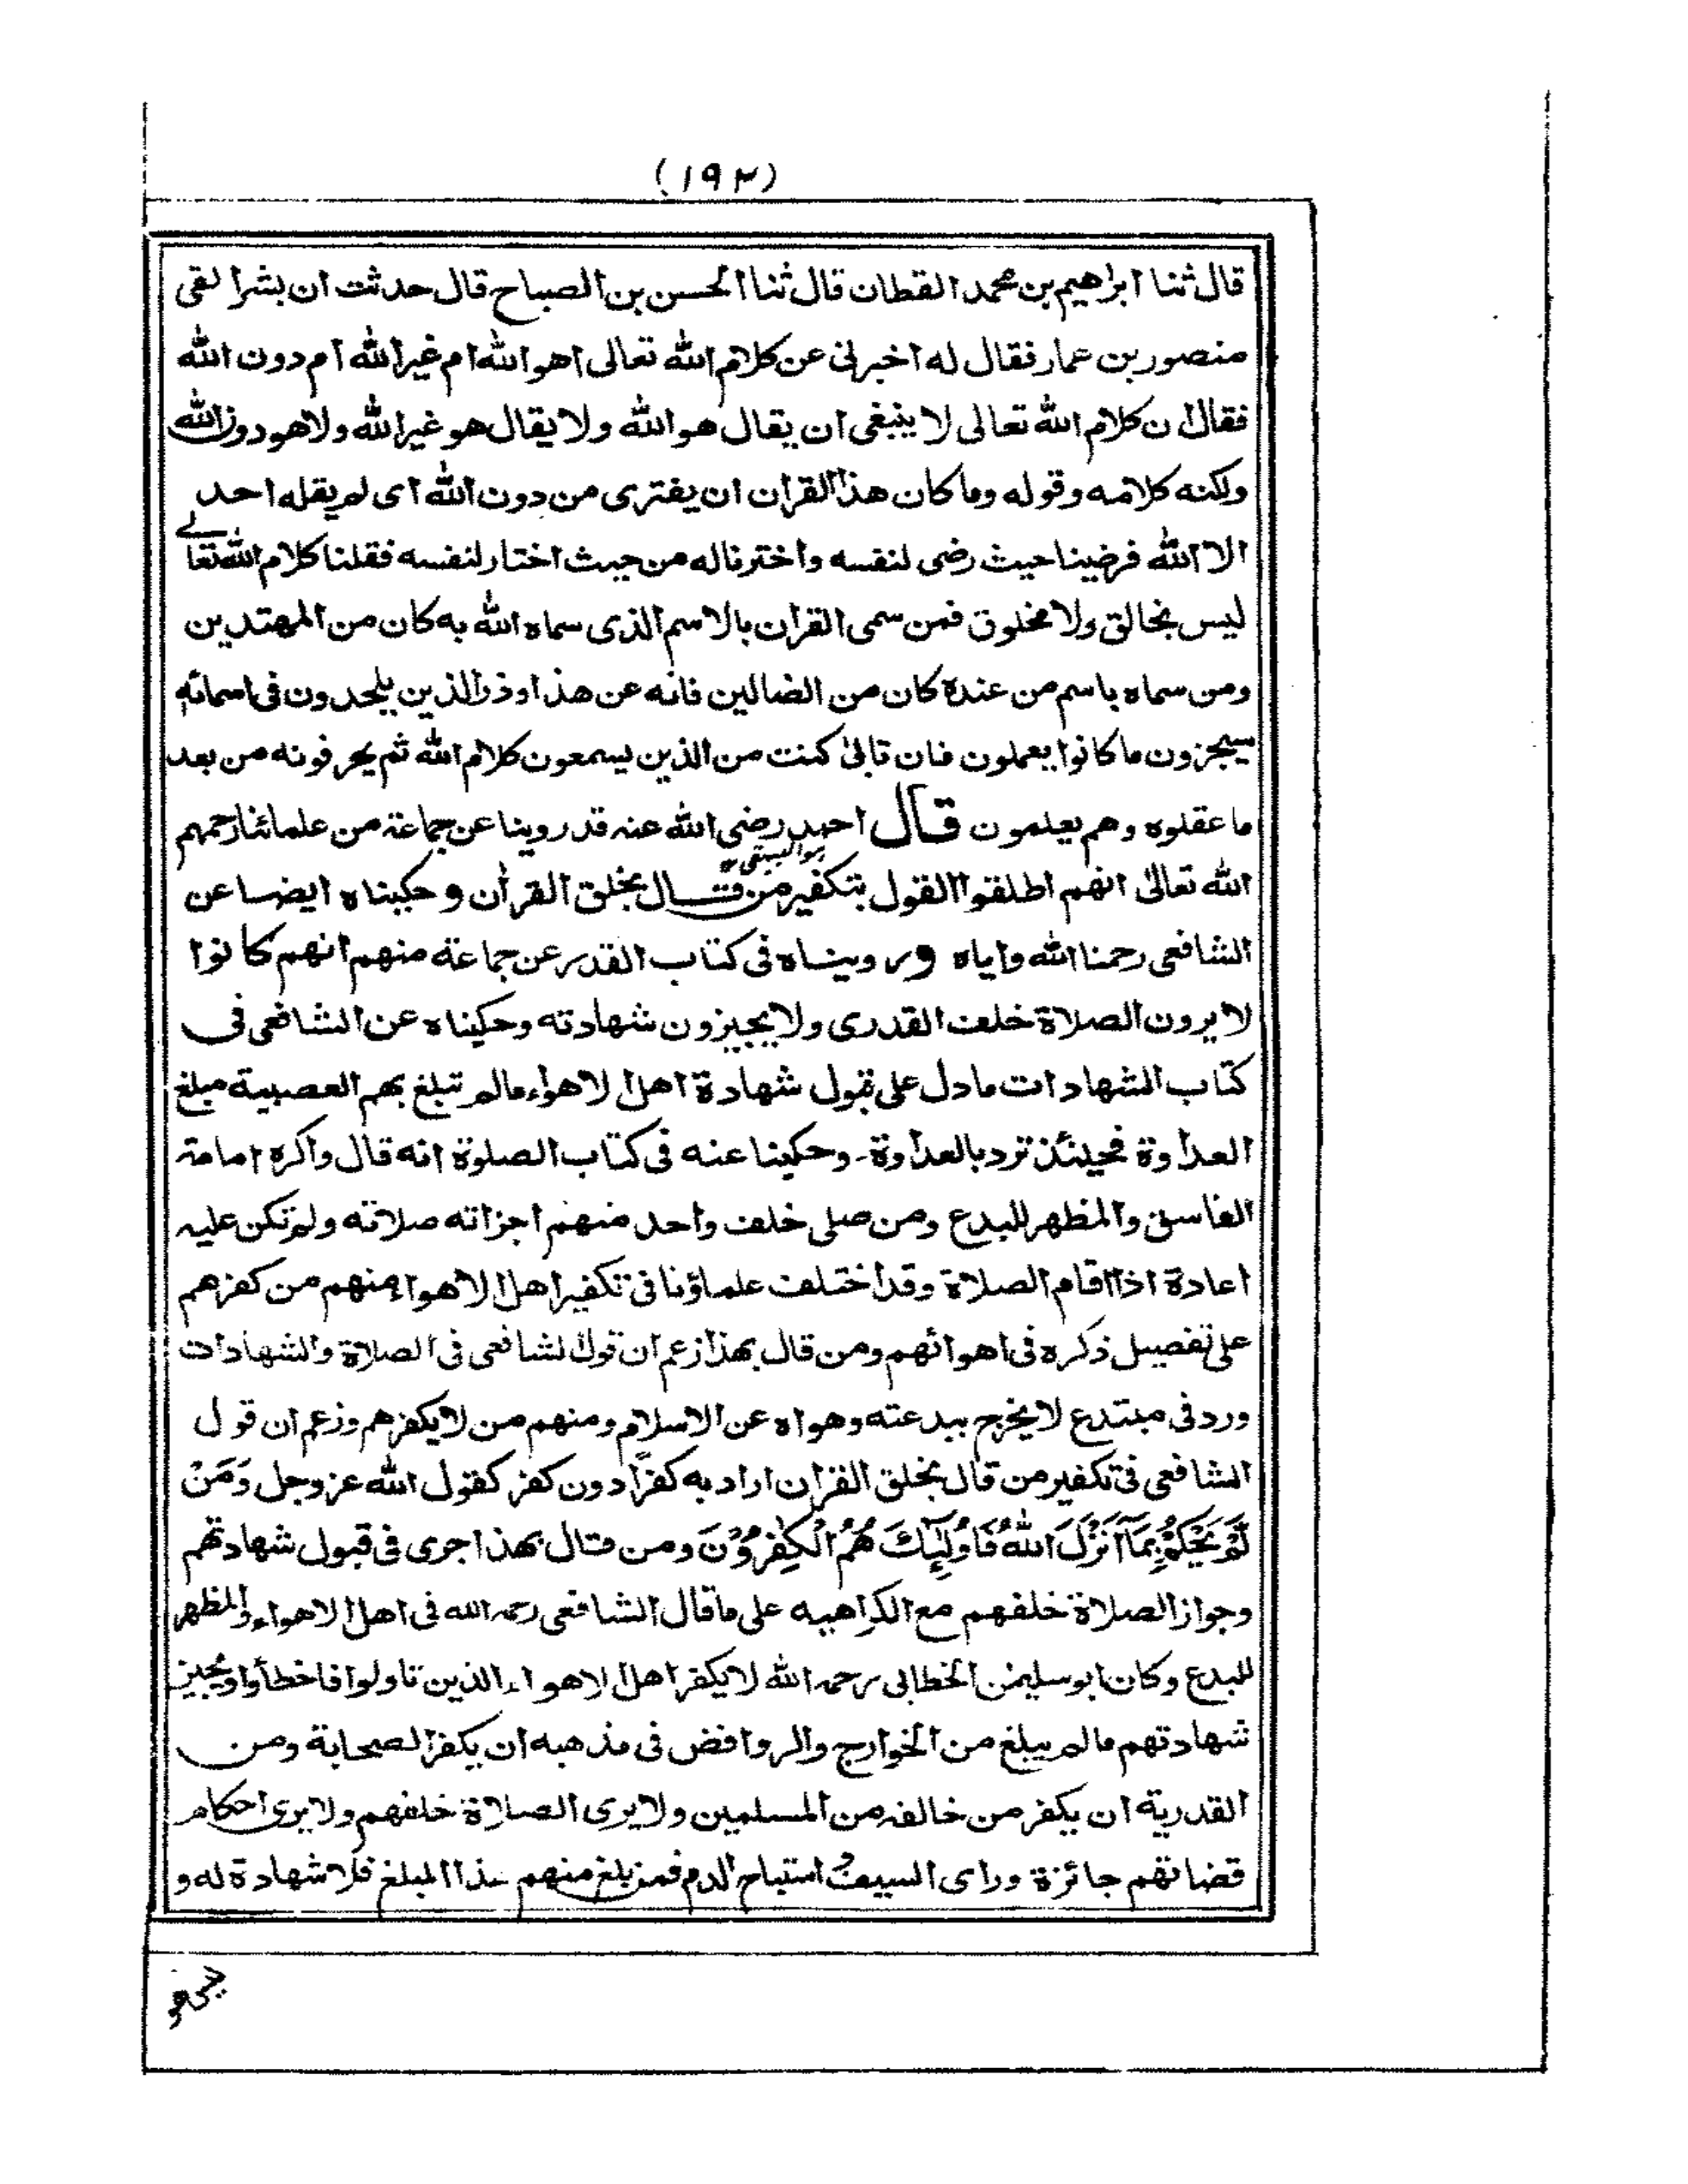 (١٩٣)
قال ثنا ابراهيم بن محمد القطان قال ثنا الحسن بن الصباح قال حدثت ان بشرا لقى
منصور بن عمار فقال له اخبرنى عن كلام الله تعالى اهو الله ام غير الله ام دون الله
فقال ان كلام الله تعالى لا ينبغى ان يقال هو الله ولا يقال هو غير الله ولا هو دون الله
ولكنه كلامه وقوله وما كان هذا القرآن ان يفترى من دون الله اى لم يقله احد
الا الله فرضينا حيث رضى لنفسه واخترنا له من حيث اختار لنفسه فقلنا كلام الله تعالے
ليس بخالق ولا مخلوق فمن سمى القرآن بالاسم الذى سماه الله به كان من المهتدين
ومن سماه باسم من عنده كان من الضالين فانه عن هذا وذر الذين يلحدون فى اسمائه
سيجزون ما كانوا يعملون فان تابىٰ كنت من الذين يسمعون كلام الله ثم يحرفونه من بعد
ما عقلوه وهم يعلمون قال احمد رضى الله عنه قد روينا عن جماعة من علمائنا رحمهم
هو البيهقى ١٢
الله تعالىٰ انهم اطلقوا القول بتكفير من قال بخلق القرآن وحكيناه ايضا عن
الشافعى رحمنا الله واياه ورويناه فى كتاب القدر عن جماعة منهم انهم كانوا
لا يرون الصلاة خلف القدرى ولا يجيزون شهادته وحكيناه عن الشافعى فى
كتاب الشهادات ما دل على قبول شهادة اهل الاهواء مالم تبلغ بهم العصبية مبلغ
العداوة فحينئذ ترد بالعداوة۔ وحكينا عنه فى كتاب الصلوة انه قال واكره امامة
الفاسق والمظهر للبدع ومن صلى خلف واحد منهم اجزاته صلاته ولم تكن عليه
اعادة اذا اقام الصلاة وقد اختلف علماؤنا فى تكفير اهل الاهواء منهم من كفرهم
على تفصيل ذكره فى اهوائهم ومن قال بهذا زعم ان قول الشافعى فى الصلاة والشهادات
ورد فى مبتدع لا يخرج ببدعته وهواه عن الاسلام ومنهم من لا يكفرهم وزعم ان قول
الشافعى فى تكفير من قال بخلق القرآن اراد به كفرًا دون كفر كقول الله عز وجل وَمَنْ
لَّمْ يَحْكُمْ بِمَآ اَنْزَلَ اللهُ فَاُولٰٓئِكَ هُمُ الْكٰفِرُوْنَ ومن قال بهذا جرى فى قبول شهادتهم
وجواز الصلاة خلفهم مع الكراهيه على ما قال الشافعى رحمه الله فى اهل الاهواء والمظهر
للبدع وكان ابو سليمٰن الخطابى رحمه الله لا يكفر اهل الاهواء الذين تاولوا فاخطأوا ويجيز
شهادتهم مالم يبلغ من الخوارج والروافض فى مذهبه ان يكفر الصحابة ومن
القدرية ان يكفر من خالفه من المسلمين ولا يرى الصلاة خلفهم ولا يرى احكام
قضاتهم جائزة وراى السيف استباح الدم فمن بلغ منهم هذا المبلغ فلا شهادة له و